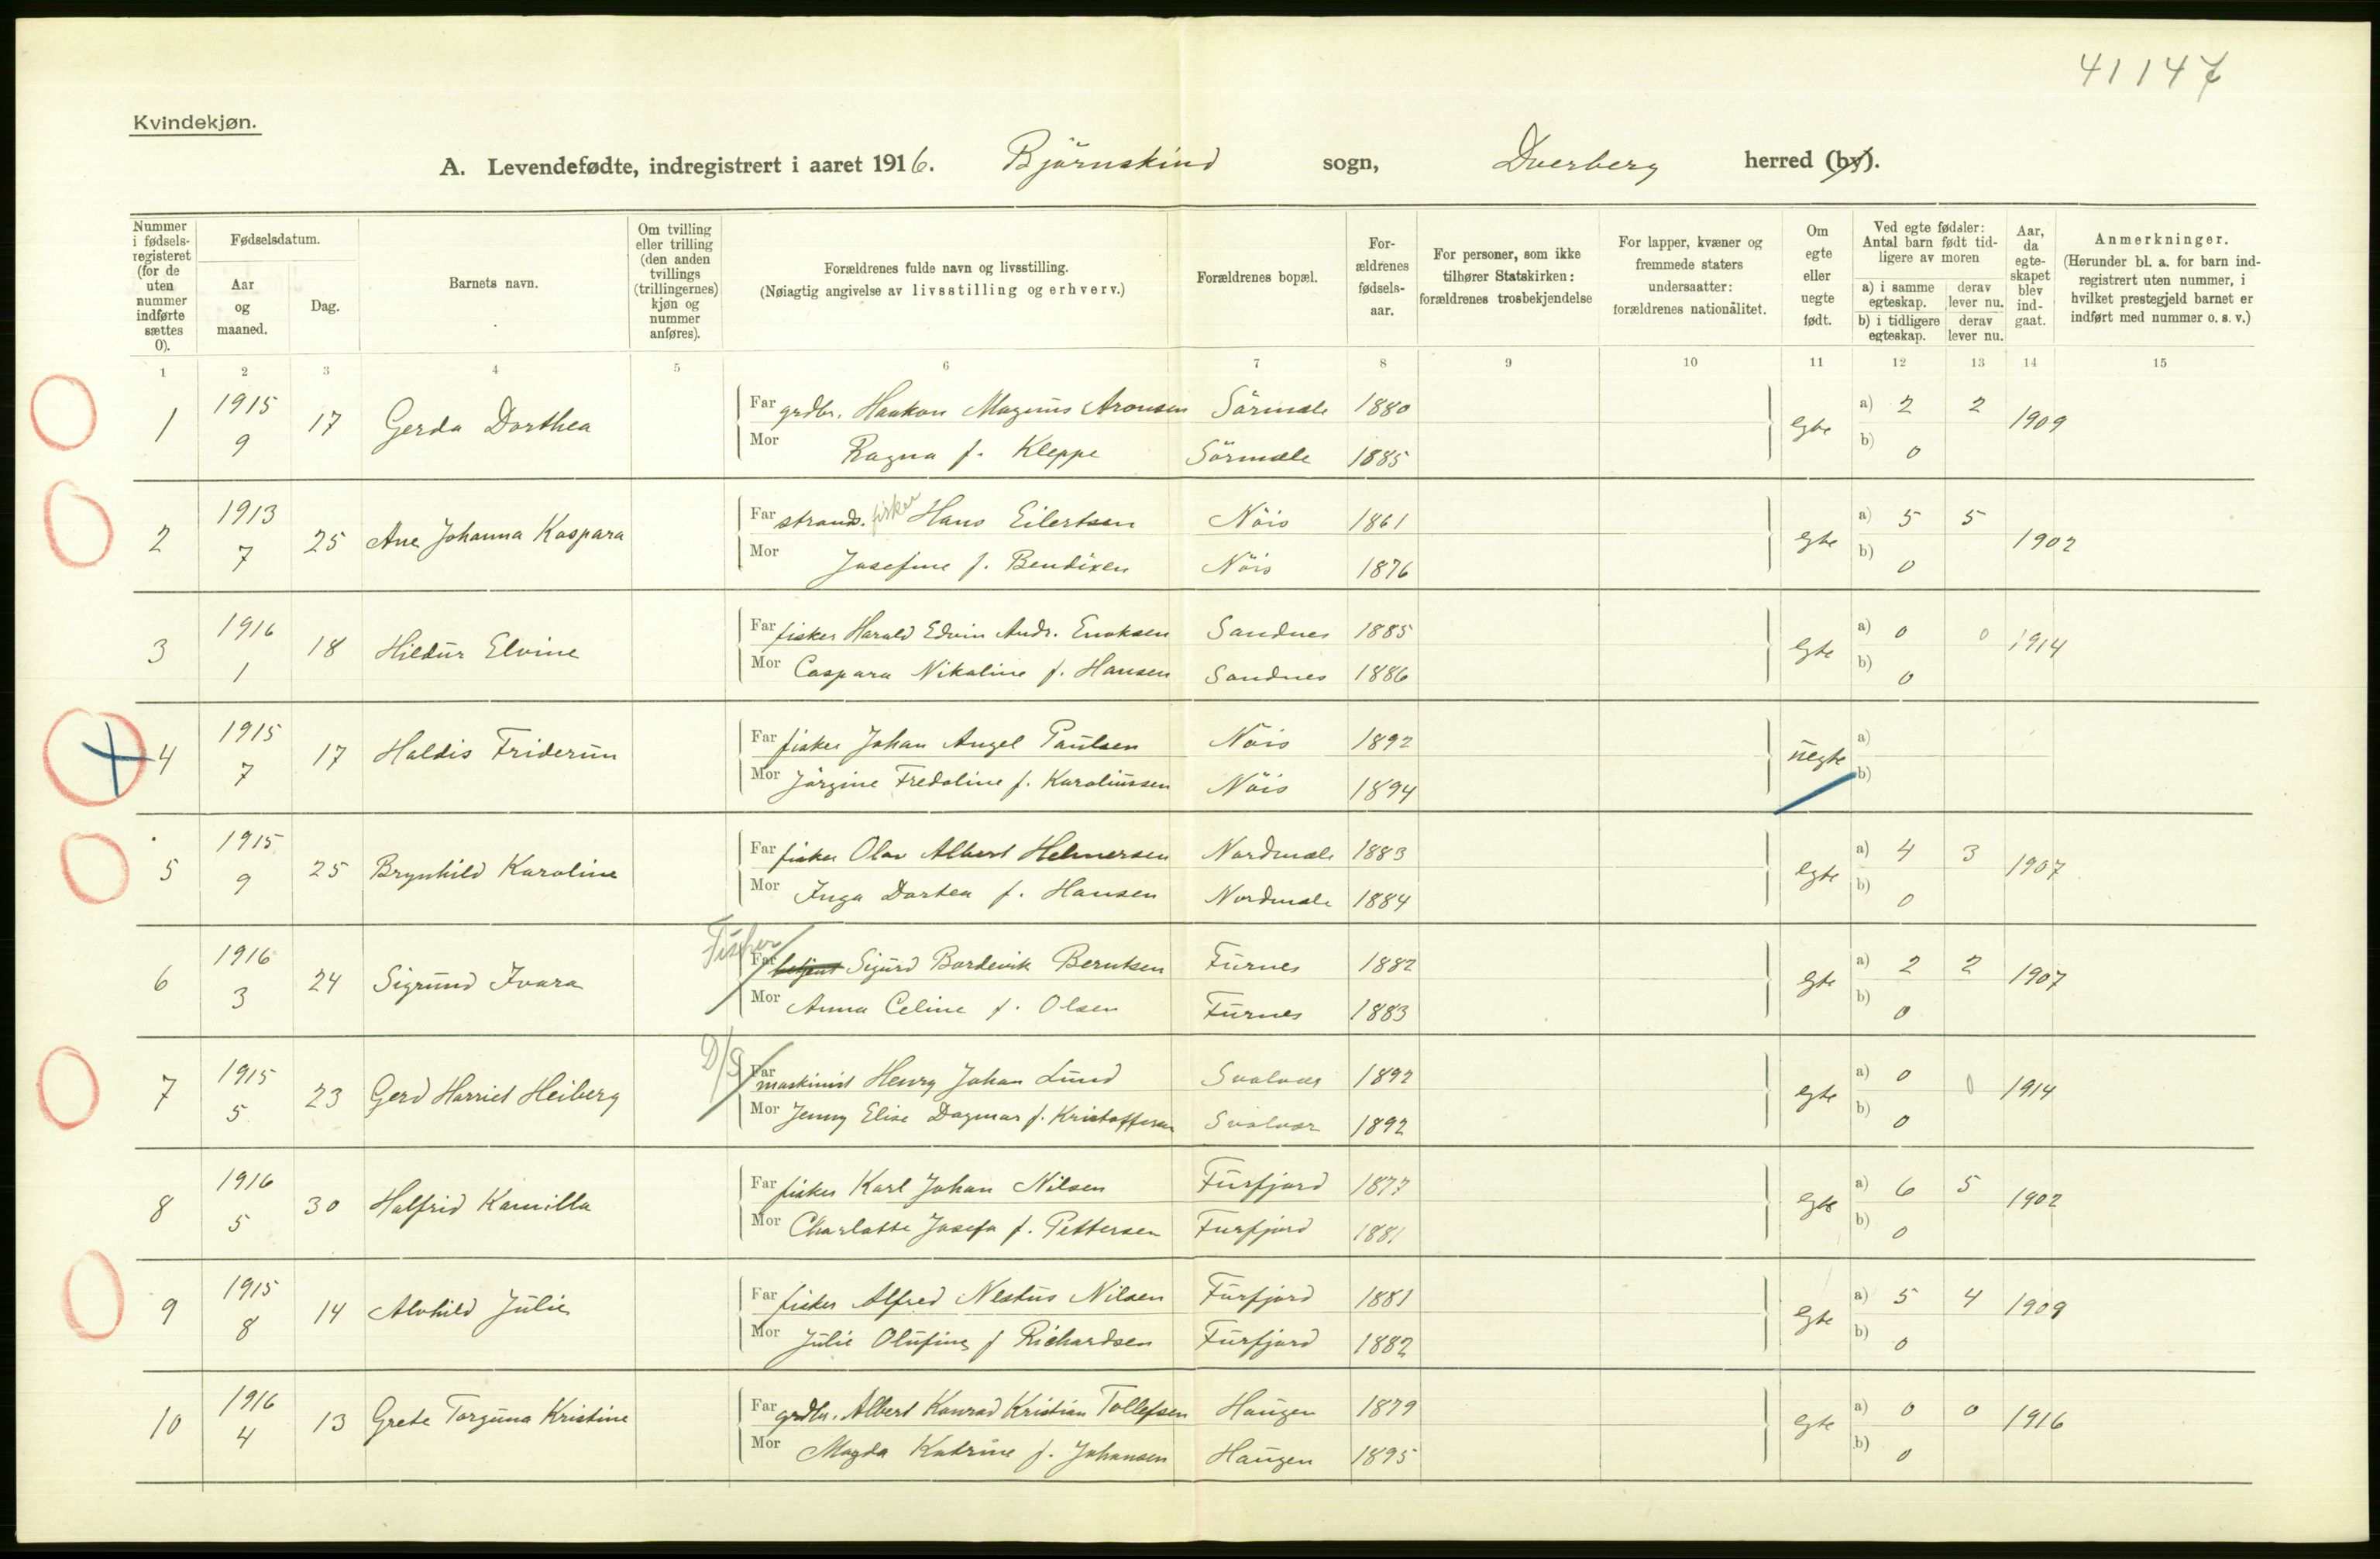 41147
Kvindekjøn.
A. Levendefødte, indregistrert i aaret 1916. Björnskind sogn, Dverberg herred (by).
Nummer i fødselsregisteret (for de uten nummer indførte sættes 0). | Fødselsdatum. Aar og maaned. | Dag. | Barnets navn. | Om tvilling eller trilling (den anden tvillings (trillingernes) kjøn og nummer anføres). | Forældrenes fulde navn og livsstilling. (Nøiagtig angivelse av livsstilling og erhverv.) | Forældrenes bopæl. | Forældrenes fødselsaar. | For personer, som ikke tilhører Statskirken: forældrenes trosbekjendelse | For lapper, kvæner og fremmede staters undersaatter: forældrenes nationalitet. | Om egte eller uegte født. | Ved egte fødsler: Antal barn født tidligere av moren a) i samme egteskap. b) i tidligere egteskap. | derav lever nu. derav lever nu. | Aar, da egteskapet blev indgaat. | Anmerkninger. (Herunder bl. a. for barn indregistrert uten nummer, i hvilket prestegjeld barnet er indført med nummer o. s. v.)
1 2 3 4 5 6 7 8 9 10 11 12 13 14 15
1 1915 9 17 Gerda Dorthea Far grdbr. Haakon Magnus Aronsen Sörmele 1880 egte a) 2 2 1909
Mor Ragna f. Kleppe Sörmele 1885 b) 0
2 1913 7 25 Ane Johanna Kaspara Far strands. fisker Hans Eilertsen Nöis 1861 egte a) 5 5 1902
Mor Josefine f. Bendixen Nöis 1876 b) 0
3 1916 1 18 Hildur Elvine Far fisker Harald Edvin Andr. Enoksen Sandnes 1885 egte a) 0 0 1914
Mor Caspara Nikoline f. Hansen Sandnes 1886 b) 0
4 1915 7 17 Haldis Friderun Far fisker Johan Angel Paulsen Nöis 1892 uegte a)
Mor Jörgine Fredoline f. Karoliussen Nöis 1894 b)
5 1915 9 25 Brynhild Karoline Far fisker Olav Albert Helmersen Nordmele 1883 egte a) 4 3 1907
Mor Inga Dortea f. Hansen Nordmele 1884 b) 0
Fisker
6 1916 3 24 Sigrund Ivara Far betjent Sigurd Bordevik Berntsen Furnes 1882 egte a) 2 2 1907
Mor Anna Celine f. Olsen Furnes 1883 b) 0
D/S
7 1915 5 23 Gerd Harriet Heiberg Far maskinist Henry Johan Lund Svolvær 1892 egte a) 0 0 1914
Mor Jenny Elise Dagmar f. Kristoffersen Svolvær 1892 b) 0
8 1916 5 30 Halfrid Kamilla Far fisker Karl Johan Nilsen Furfjord 1877 egte a) 6 5 1902
Mor Charlotte Josefa f. Pettersen Furfjord 1881 b) 0
9 1915 8 14 Alvhild Julie Far fisker Alfred Nestus Nilsen Furfjord 1881 egte a) 5 4 1909
Mor Julie Olufine f Richardsen Furfjord 1882 b) 0
10 1916 4 13 Grete Torguna Kristine Far grdbr. Albert Konrad Kristian Tollefsen Haugen 1879 egte a) 0 0 1916
Mor Magda Katrine f. Johansen Haugen 1895 b) 0